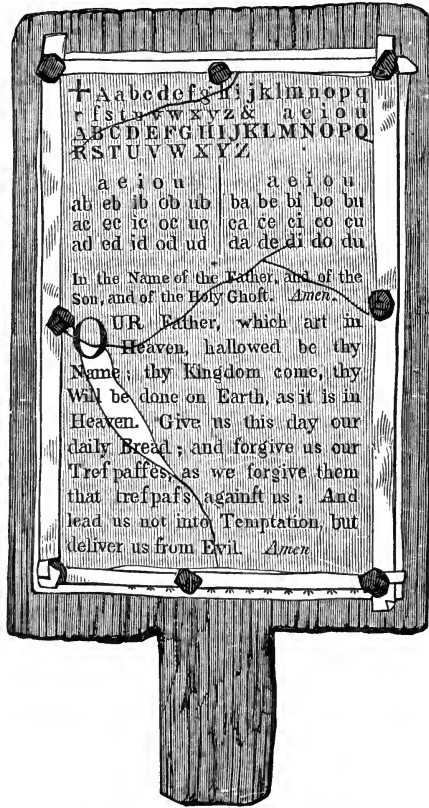 ✝ Aabcdefghijklmnopq
rſstuvwxyz& aeiou
ABCDEFGHIJKLMNOPQ
RSTUVWXYZ
a e i o u a e i o u
ab eb ib ob ub ba be bi bo bu
ac ec ic oc uc ca ce ci co cu
ad ed id od ud da de di do du
In the Name of the Father, and of the
Son, and of the Holy Ghoſt. Amen.
OUR Father, which art in
Heaven, hallowed be thy
Name; thy Kingdom come, thy
Will be done on Earth, as it is in
Heaven. Give us this day our
daily Bread; and forgive us our
Treſpaſſes, as we forgive them
that treſpaſs againſt us: And
lead us not into Temptation, but
deliver us from Evil. Amen